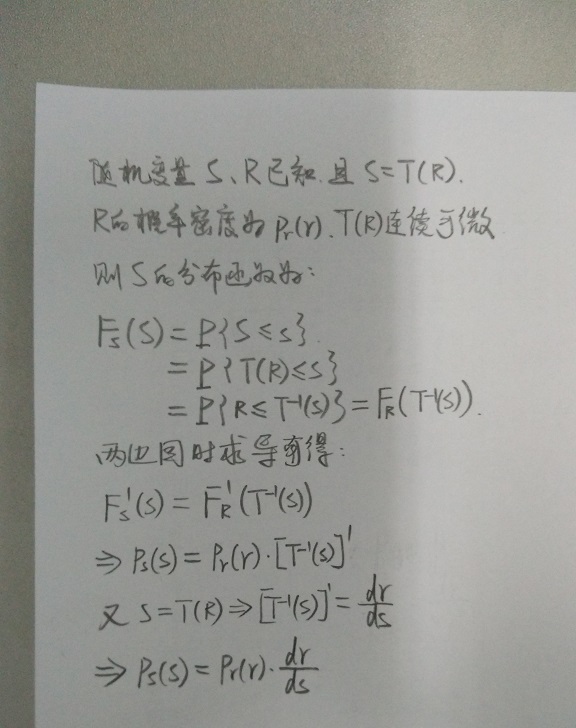 随机变量 S、R已知.且 S=T(R).
R的概率密度为 Pr(r).T(R)连续可微
则 S的分布函数为:
Fs(S) = P{S≤s}.
= P{T(R)≤s}
= P{R≤T⁻¹(s)} = FR(T⁻¹(s)).
两边同时求导得:
Fs'(s) = FR'(T⁻¹(s))
⇒ Ps(s) = Pr(r)·[T⁻¹(s)]'
又 S=T(R) ⇒ [T⁻¹(s)]' = dr/ds
⇒ Ps(s) = Pr(r)·dr/ds